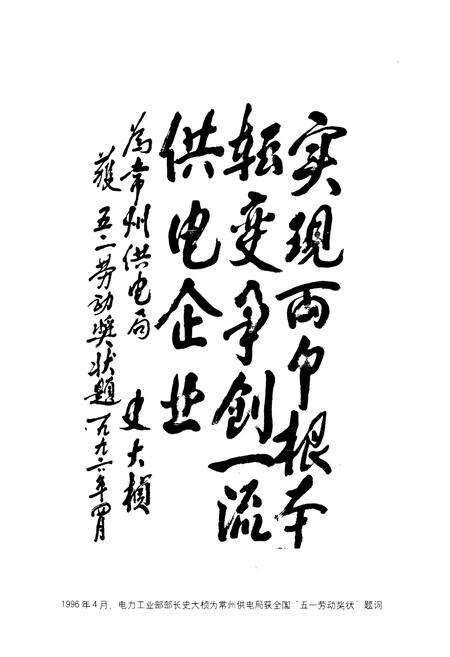 实现两个根本
转变争创一流
供电企业
为常州供电局 史大桢
获五一劳动奖状题 一九九六年四月
1996年4月，电力工业部部长史大桢为常州供电局获全国“五一劳动奖状”题词